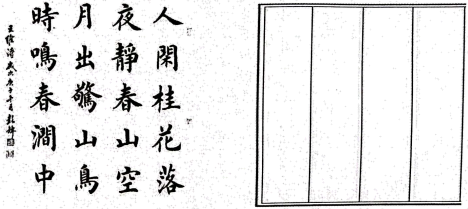 人閑桂花落
夜靜春山空
月出驚山鳥
時鳴春澗中
王維詩